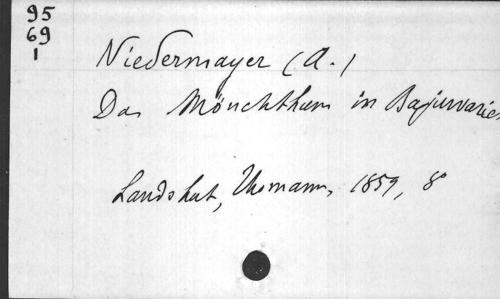 95
69
1
Niedermayer (A.)
Das Mönchthum in Bajuwarien
Landshut, Thomann, 1859, 8°